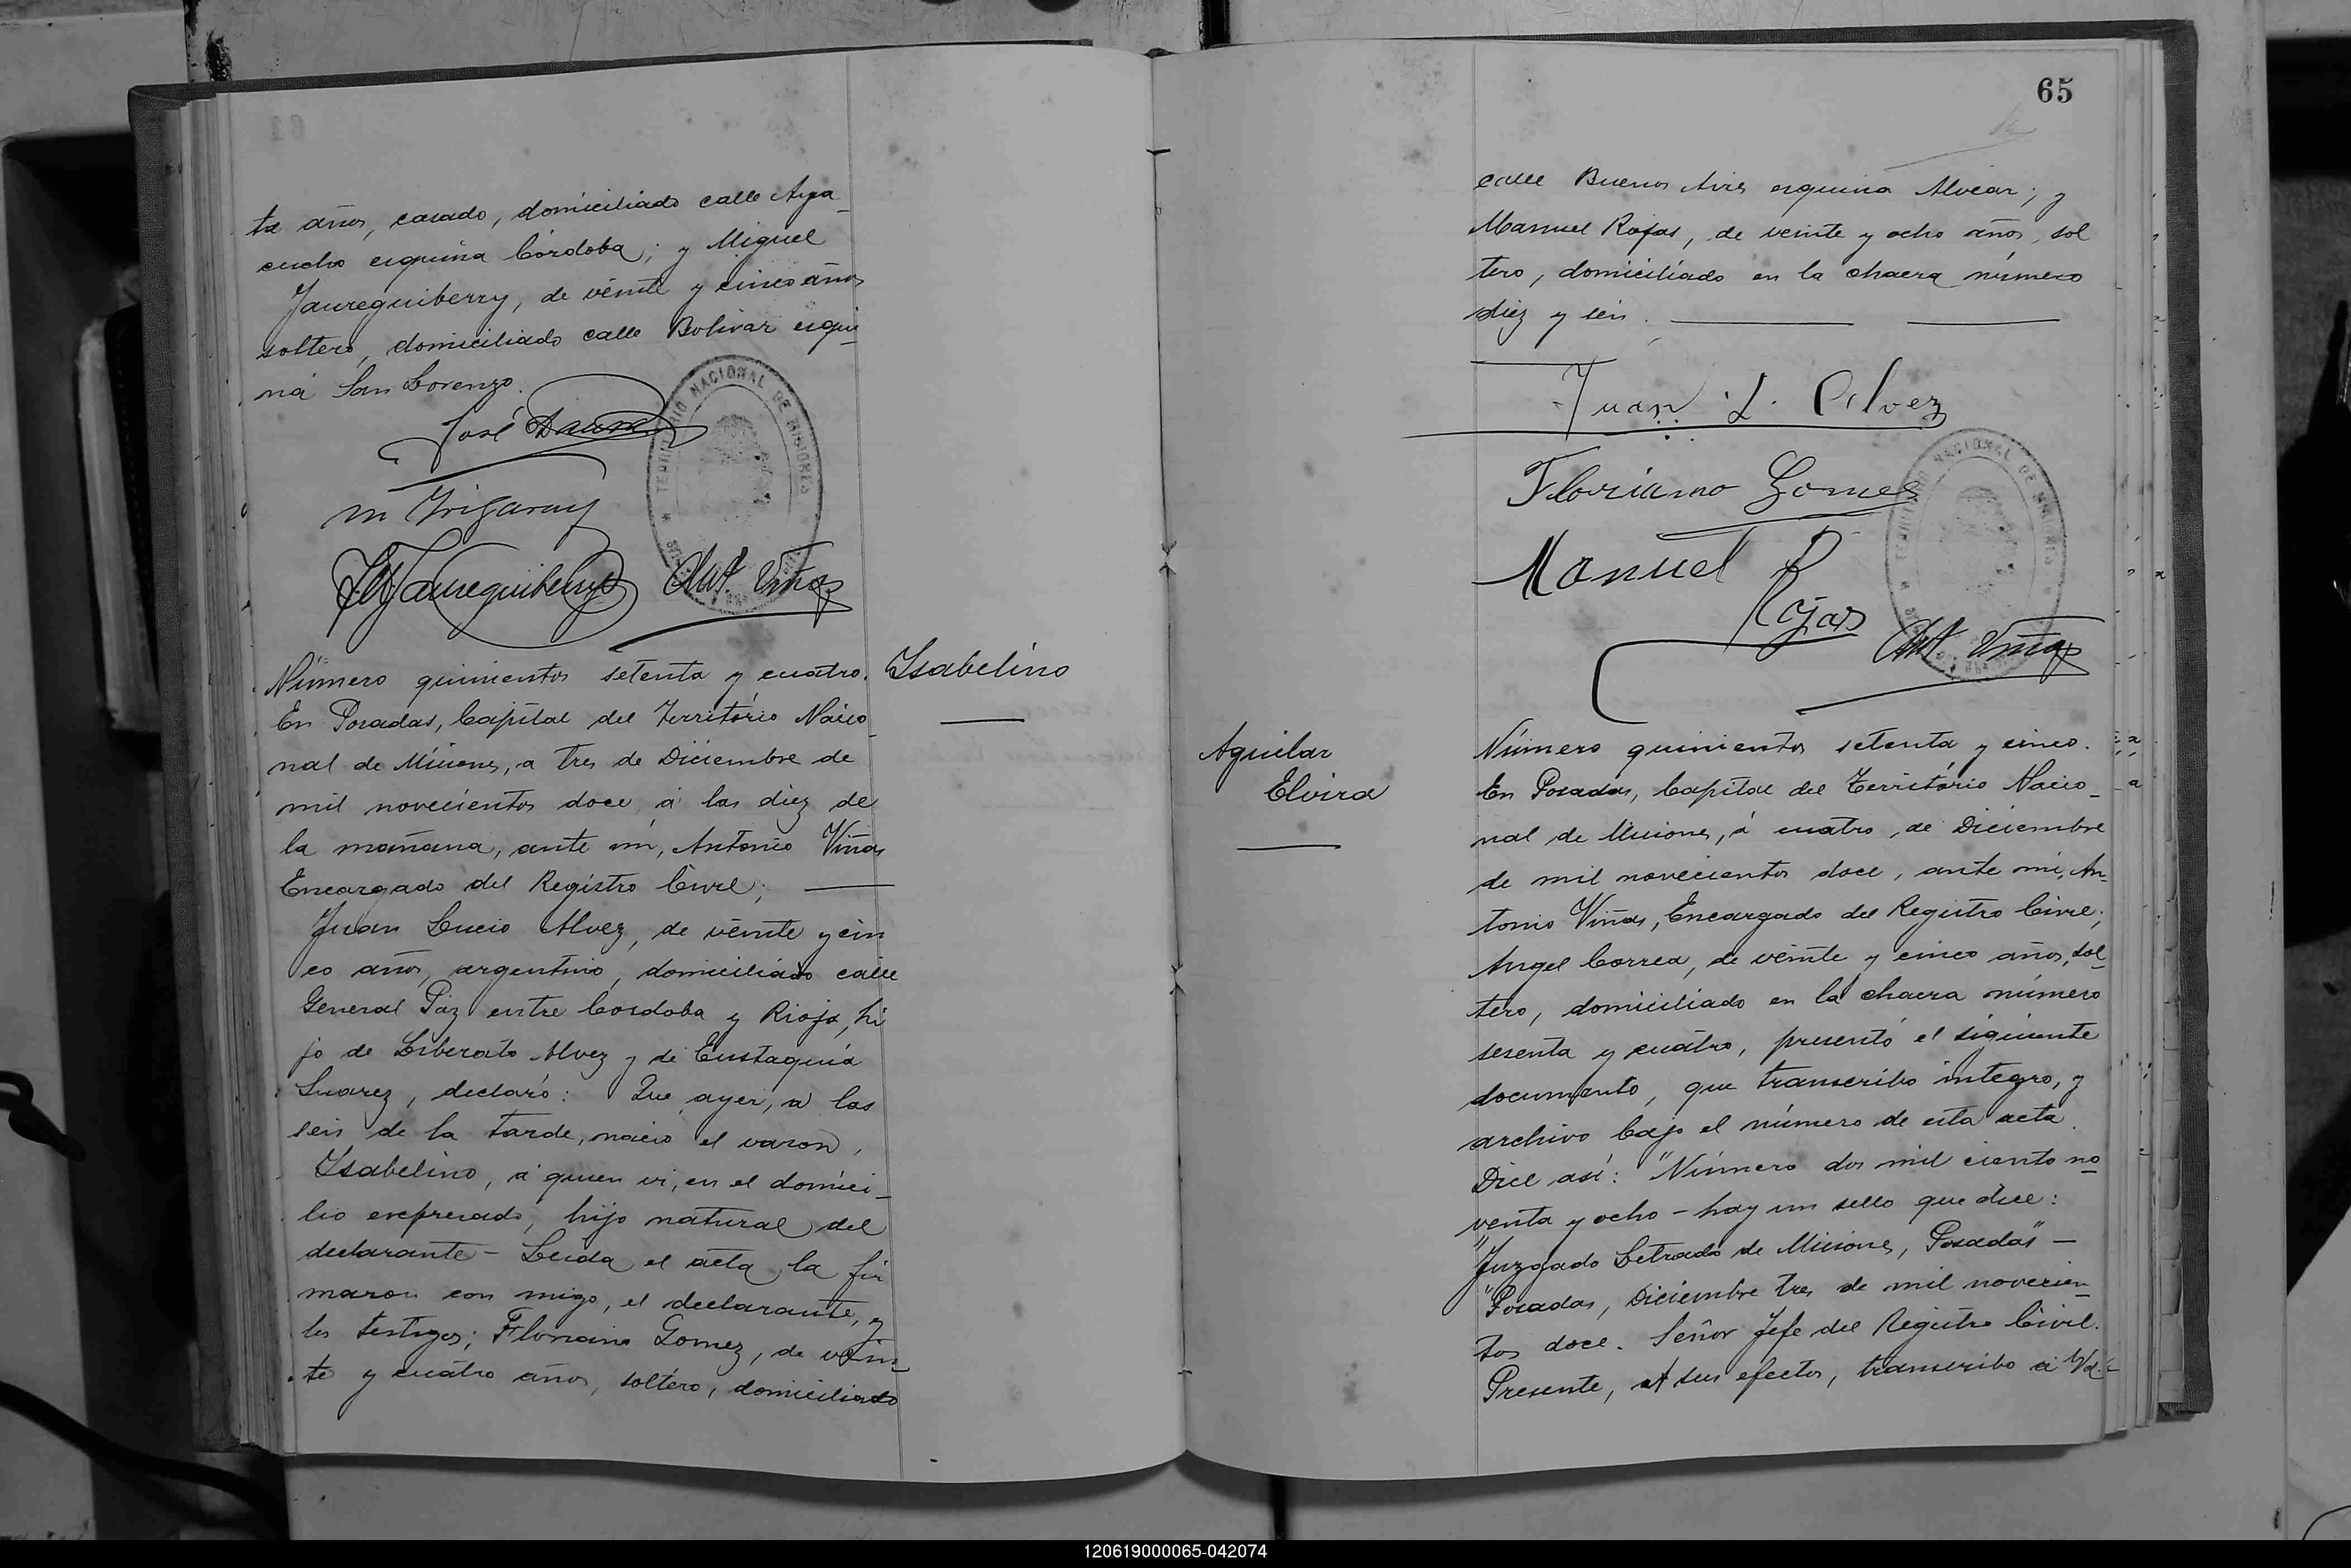 ta años, casado, domiciliado calle Aya_
cucho esquina Córdoba; y Miguel
Jaureguiberry, de veinte y cinco años
soltero, domiciliado calle Bolivar esqui_
na San Lorenzo.
José
M Yrigaray
Jaureguiberry Ant. Viñas
TERRITORIO NACIONAL DE MISIONES
Número quinientos setenta y cuatro. Isabelino
En Posadas, Capital del Territorio Nacio_
nal de Misiones, a tres de Diciembre de
mil novecientos doce, á las diez de
la mañana, ante mi, Antonio Viñas
Encargado del Registro Civil; ——
Juan Lucio Alvez, de veinte y cin
co años, argentino, domiciliado calle
General Paz entre Cordoba y Rioja, hi
jo de Liberato Alvez y de Eustaquia
Suarez, declaró: Que ayer, a las
seis de la tarde, nacio el varon,
Isabelino, á quien vi, en el domici_
lio expresado, hijo natural del
declarante – Leida el acta la fir
maron con migo, el declarante, y
los testigos; Floriano Gomez, de vein_
te y cuatro años, soltero, domiciliado
65
calle Buenos Aires esquina Alvear; y
Manuel Rojas, de veinte y ocho años, sol
tero, domiciliado en la chacra número
diez y seis. ——
Juan L. Alvez
Floriano Gomes
Manuel
Rojas
Ant Viñas
TERRITORIO NACIONAL DE MISIONES
Aguilar
Elvira
Número quinientos setenta y cinco.
En Posadas, Capital del Territorio Nacio_
nal de Misiones, á cuatro de Diciembre
de mil novecientos doce, ante mi, An_
tonio Viñas, Encargado del Registro Civil;
Angel Correa, de veinte y cinco años, sol_
tero, domiciliado en la chacra número
sesenta y cuatro, presentó el siguiente
documento, que transcribo integro, y
archivo bajo el número de esta acta.
Dice así: "Número dos mil ciento no_
venta y ocho – hay un sello que dice:
"Juzgado Letrado de Misiones, Posadas" —
"Posadas, Diciembre tres de mil novecien_
tos doce. Señor Jefe del Registro Civil.
Presente, A sus efectos, transcribo á Vd.
120619000065-042074